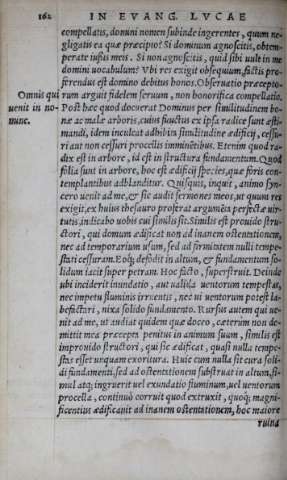 162 IN EVANG. LVCAE
compellatis, domini nomen subinde ingerentes, quum ne-
gligatis ea quæ præcipio? Si dominum agnoscitis, obtem-
perate iussis meis. Si non agnoscitis, quid sibi uult in me
domini uocabulum? Vbi res exigit obsequium, factis pro-
ferendus est domino debitus honos. Obseruatio præcepto-
Omnis qui rum arguit fidelem seruum, non honorifica compellatio.
uenit in no- Post hæc quod docuerat Dominus per similitudinem bo-
mine. næ ac malæ arboris, cuius fructus ex ipsa radice sunt æsti-
mandi, idem inculcat adhibita similitudine ædificij, cessu-
ri aut non cessuri procellis imminẽtibus. Etenim quod ra-
dix est in arbore, id est in structura fundamentum. Quod
folia sunt in arbore, hoc est ædificij species, quæ foris con-
templantibus adblanditur. Quisquis, inquit, animo syn-
cero uenit ad me, & sic audit sermones meos, ut quum res
exigit, ex huius thesauro proferat argumẽta perfectæ uir-
tutis, indicabo uobis cui similis sit. Similis est prouido stru-
ctori, qui domum ædificat non ad inanem ostentationem,
nec ad temporarium usum, sed ad firmitatem nulli tempe-
stati cessuram. Eoq; defodit in altum, & fundamentum so-
lidum iacit super petram. Hoc facto, superstruit. Deinde
ubi inciderit inundatio, aut ualida uentorum tempestas,
nec impetu fluminis irruentis, nec ui uentorum potest la-
befactari, nixa solido fundamento. Rursus autem qui ue-
nit ad me, ut audiat quidem quæ doceo, cæterum non de-
mittit mea præcepta penitus in animum suum, similis est
improuido structori, qui sic ædificat, quasi nulla tempe-
stas esset unquam exoritura. Huic cum nulla sit cura soli-
di fundamenti, sed ad ostentationem substruat in altum, si-
mul atq; ingruerit uel exundatio fluminum, uel uentorum
procella, continuò corruit quod extruxit, quoq; magni-
ficentius ædificauit ad inanem ostentationem, hoc maiore
ruina